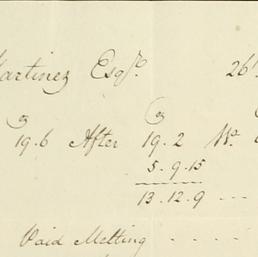 Martinez Esqre. 26
oz oz
19.6 After 19.2
5.9.15
13.12.9 ...
Paid Melting . . . .